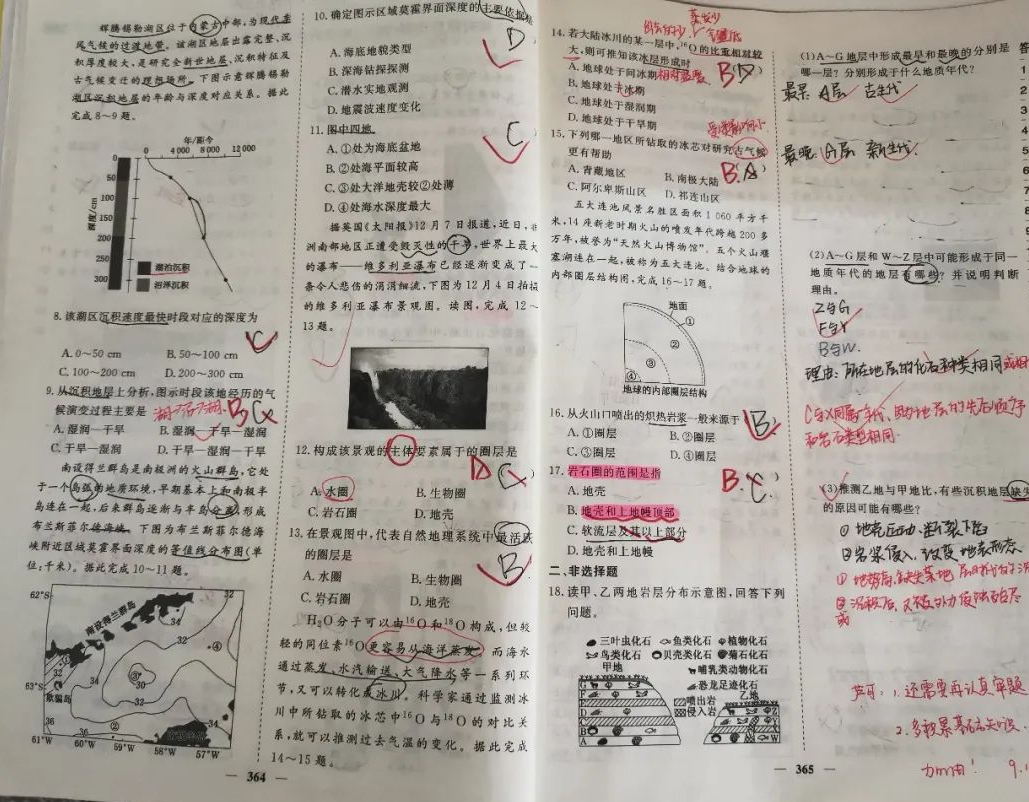 辉腾锡勒湖区位于内蒙古中部,为现代季
风气候的过渡地带。该湖区地层出露完整、沉
积厚度较大,是研究全新世地层、沉积特征及
古气候变迁的理想场所。下图示意辉腾锡勒
湖区沉积地层的年龄与深度对应关系。据此
完成8~9题。
年/距今
0 4 000 8 000 12 000
深度/cm
0
50
100
150
200
250
300
湖泊沉积
沼泽沉积
8.该湖区沉积速度最快时段对应的深度为
C
A. 0~50 cm B. 50~100 cm
C. 100~200 cm D. 200~300 cm
9.从沉积地层上分析,图示时段该地经历的气
候演变过程主要是 B C
A. 湿润—干旱 B. 湿润—干旱—湿润
C. 干旱—湿润 D. 干旱—湿润—干旱
南设得兰群岛是南极洲的火山群岛,它处
于一个岛弧的地质环境,早期基本上和南极半
岛连在一起,后来群岛逐渐与半岛分离,形成
布兰斯菲尔德海峡。下图为布兰斯菲尔德海
峡附近区域莫霍界面深度的等值线分布图(单
位:千米)。据此完成10~11题。
62°S
63°S
南设得兰群岛
欺骗岛
61°W 60°W 59°W 58°W 57°W
32 34 32 34 30 34 36 36
① ② ③ ④
— 364 —
10.确定图示区域莫霍界面深度的主要依据是
D
A. 海底地貌类型
B. 深海钻探探测
C. 潜水实地观测
D. 地震波速度变化
11.图中四地
C
A. ①处为海底盆地
B. ②处海平面较高
C. ③处大洋地壳较②处薄
D. ④处海水深度最大
据英国《太阳报》12月7日报道,近日,非
洲南部地区正遭受毁灭性的干旱,世界上最大
的瀑布——维多利亚瀑布已经逐渐变成了一
条令人悲伤的涓涓细流,下图为12月4日拍摄
的维多利亚瀑布景观图。读图,完成12~
13题。
12.构成该景观的主体要素属于的圈层是
D C
A. 水圈 B. 生物圈
C. 岩石圈 D. 地壳
13.在景观图中,代表自然地理系统中最活跃
的圈层是 B
A. 水圈 B. 生物圈
C. 岩石圈 D. 地壳
H₂O分子可以由¹⁶O和¹⁸O构成,但较
轻的同位素¹⁶O更容易从海洋蒸发,而海水
通过蒸发、水汽输送、大气降水等一系列环
节,又可以转化成冰川。科学家通过监测冰
川中所钻取的冰芯中¹⁶O与¹⁸O的对比关
系,就可以推测过去气温的变化。据此完成
14~15题。
14.若大陆冰川的某一层中,¹⁶O的比重相对较
大,则可推知该冰层形成时
B D
A. 地球处于间冰期
B. 地球处于冰期
C. 地球处于湿润期
D. 地球处于干旱期
15.下列哪一地区所钻取的冰芯对研究古气候
更有帮助 B. A
A. 青藏地区 B. 南极大陆
C. 阿尔卑斯山区 D. 祁连山区
五大连池风景名胜区面积1 060平方千
米,14座新老时期火山的喷发年代跨越200多
万年,被誉为“天然火山博物馆”。五个火山堰
塞湖连在一起,被称为五大连池。结合地球的
内部圈层结构图,完成16~17题。
地面
①
②
③
④
地球的内部圈层结构
16.从火山口喷出的炽热岩浆一般来源于 B
A. ①圈层 B. ②圈层
C. ③圈层 D. ④圈层
17.岩石圈的范围是指 B. C
A. 地壳
B. 地壳和上地幔顶部
C. 软流层及其以上部分
D. 地壳和上地幔
二、非选择题
18.读甲、乙两地岩层分布示意图,回答下列
问题。
三叶虫化石 鱼类化石 植物化石
鸟类化石 贝壳类化石 菊石化石
甲地 哺乳类动物化石
恐龙足迹化石
喷出岩 乙地
侵入岩
G
F
E
D
C
B
A
Z
Y
X
W
— 365 —
(1)A~G地层中形成最早和最晚的分别是
哪一层?分别形成于什么地质年代?
最早 A层 古生代
最晚 G层 新生代.
(2)A~G层和W~Z层中可能形成于同一
地质年代的地层有哪些?并说明判断
理由。
Z与G
F与Y
B与W.
理由:所在地层的化石种类相同
C与X同属
和岩石类型相同.
(3)推测乙地与甲地比,有些沉积地层缺失
的原因可能有哪些?
① 地壳运动,断裂下陷
②岩浆侵入,改变地表形态
1.还需要再认真审题
2.多积累基础知识
加油!